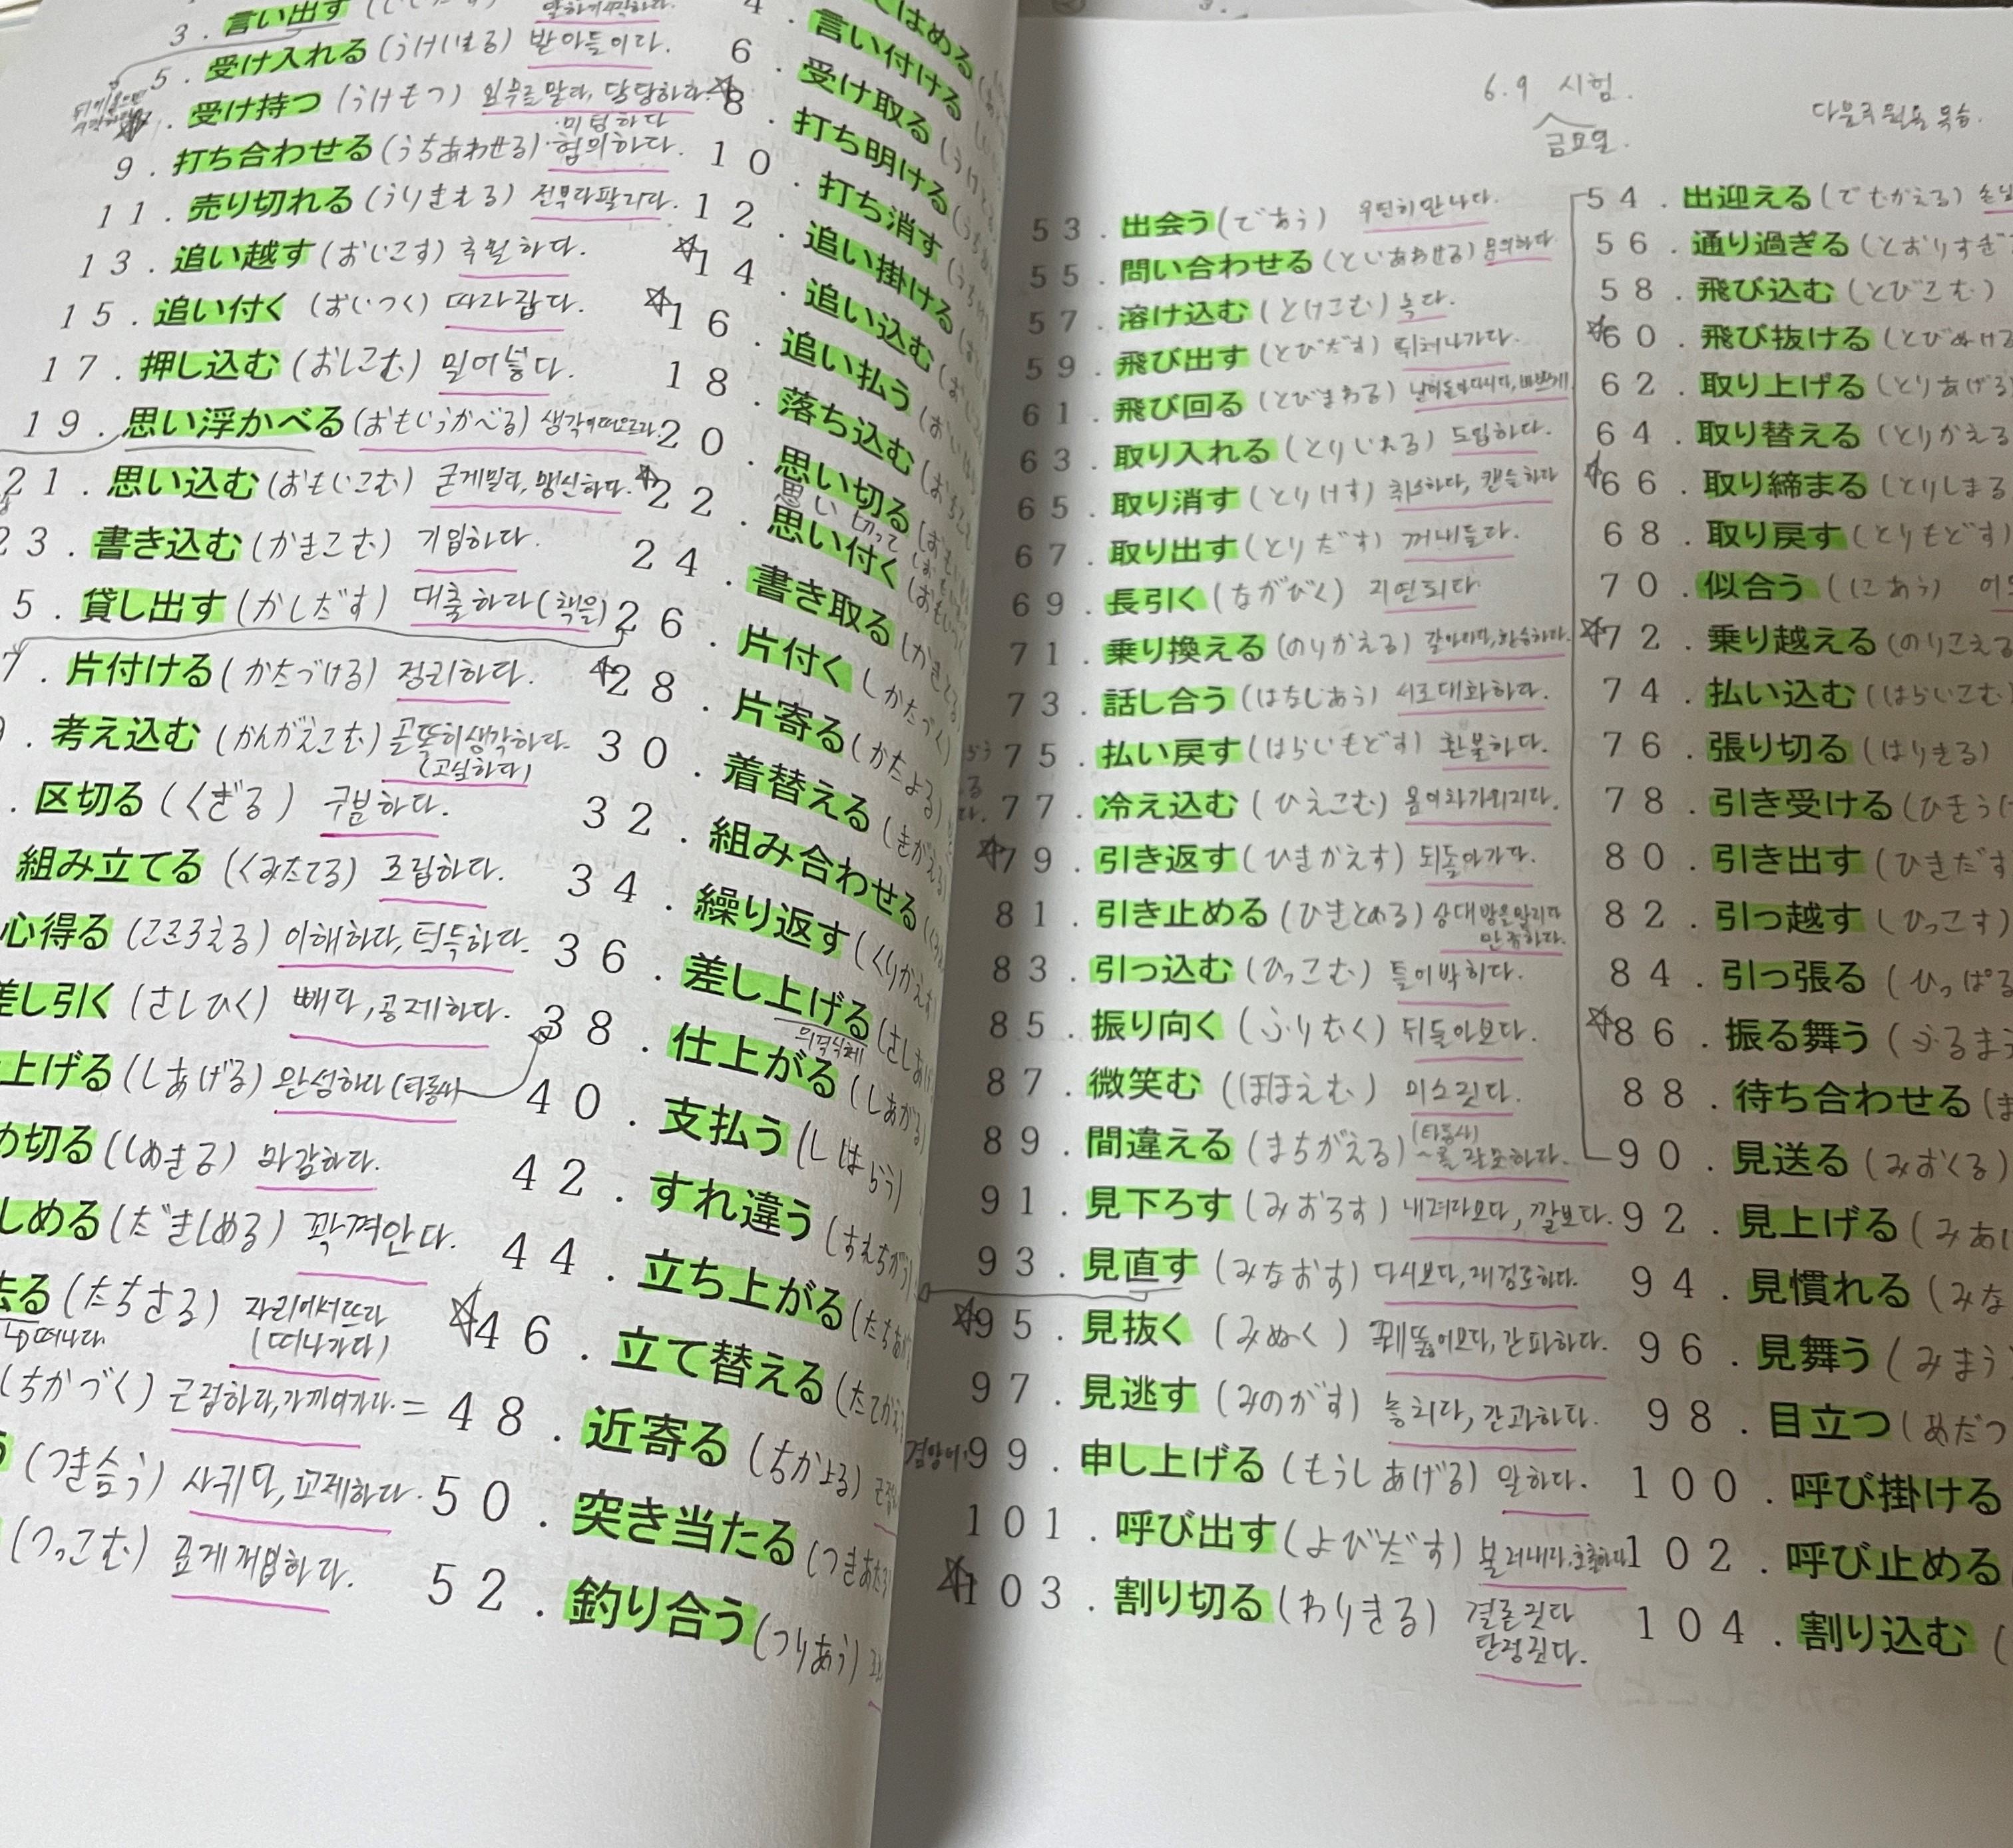 3．言い出す
5．受け入れる (うけいれる) 받아들이다.
受け持つ (うけもつ) 담당하다.
9．打ち合わせる (うちあわせる) ·협의하다.
·미팅하다
11．売り切れる (うりきれる) 전부다팔리다.
13．追い越す (おいこす) 추월하다.
15．追い付く (おいつく) 따라잡다.
17．押し込む (おしこむ) 밀어넣다.
19．思い浮かべる (おもいうかべる) 생각이떠오르다.
21．思い込む (おもいこむ) 굳게믿다, 맹신하다.
23．書き込む (かきこむ) 기입하다.
5．貸し出す (かしだす) 대출하다 (책을)
7．片付ける (かたづける) 정리하다.
．考え込む (かんがえこむ) 골똘히생각하다.
(고심하다)
．区切る (くぎる) 구분하다.
組み立てる (くみたてる) 조립하다.
心得る (こころえる) 이해하다, 터득하다.
差し引く (さしひく) 빼다, 공제하다.
上げる (しあげる) 완성하다 (타동사
め切る (しめきる) 마감하다.
しめる (だきしめる) 꽉껴안다.
去る (たちさる) 자리에서뜨다
떠나다 (떠나가다)
(ちかづく) 근접하다, 가까이가다. =
(つき合う) 사귀다, 교제하다.
(つっこむ)
4．てはめる
6．言い付ける
8．受け取る
10．打ち明ける
12．打ち消す
14．追い掛ける
16．追い込む
18．追い払う
20．落ち込む
22．思い切る
思い切って
24．思い付く
26．書き取る
28．片付く (かたづく)
30．片寄る (かたよる)
32．着替える (きがえる
34．組み合わせる
36．繰り返す (くりかえす
38．差し上げる (さしあげ
40．仕上がる (しあがる)
42．支払う (しはらう)
44．すれ違う (すれちがう)
46．立ち上がる (たちあが
48．立て替える (たてかえ
50．近寄る (ちかよる)
52．突き当たる (つきあたる
釣り合う (つりあう)
6.9 시험.
금요일.
53．出会う (であう) 우연히만나다.
55．問い合わせる (といあわせる) 문의하다.
57．溶け込む (とけこむ) 녹다.
59．飛び出す (とびだす) 뛰쳐나가다.
61．飛び回る (とびまわる)
63．取り入れる (とりいれる) 도입하다.
65．取り消す (とりけす) 취소하다, 캔슬하다
67．取り出す (とりだす) 꺼내들다.
69．長引く (ながびく) 지연되다.
71．乗り換える (のりかえる) 갈아타다, 환승하다.
73．話し合う (はなしあう) 서로대화하다.
75．払い戻す (はらいもどす) 환불하다.
77．冷え込む (ひえこむ) 몸이차가워지다.
79．引き返す (ひきかえす) 되돌아가다.
81．引き止める (ひきとめる) 상대방을말리다
만류하다.
83．引っ込む (ひっこむ) 틀어박히다.
85．振り向く (ふりむく) 뒤돌아보다.
87．微笑む (ほほえむ) 미소짓다.
89．間違える (まちがえる) (타동사)
~를잘못하다.
91．見下ろす (みおろす) 내려다보다, 깔보다.
93．見直す (みなおす) 다시보다, 재검토하다.
95．見抜く (みぬく) 꿰뚫어보다, 간파하다.
97．見逃す (みのがす) 놓치다, 간과하다.
겸양어 99．申し上げる (もうしあげる) 말하다.
101．呼び出す (よびだす) 불러내다, 호출하다
103．割り切る (わりきる) 결론짓다
단정짓다.
54．出迎える (でむかえる)
56．通り過ぎる (とおりすぎ
58．飛び込む (とびこむ)
60．飛び抜ける (とびぬける
62．取り上げる (とりあげる
64．取り替える (とりかえる
66．取り締まる (とりしまる
68．取り戻す (とりもどす)
70．似合う (にあう)
72．乗り越える (のりこえる
74．払い込む (はらいこむ
76．張り切る (はりきる)
78．引き受ける (ひきうけ
80．引き出す (ひきだす
82．引っ越す (ひっこす)
84．引っ張る (ひっぱる
86．振る舞う (ふるまう
88．待ち合わせる (ま
90．見送る (みおくる)
92．見上げる (みあげ
94．見慣れる (みな
96．見舞う (みまう
98．目立つ (めだつ
100．呼び掛ける
102．呼び止める
104．割り込む (